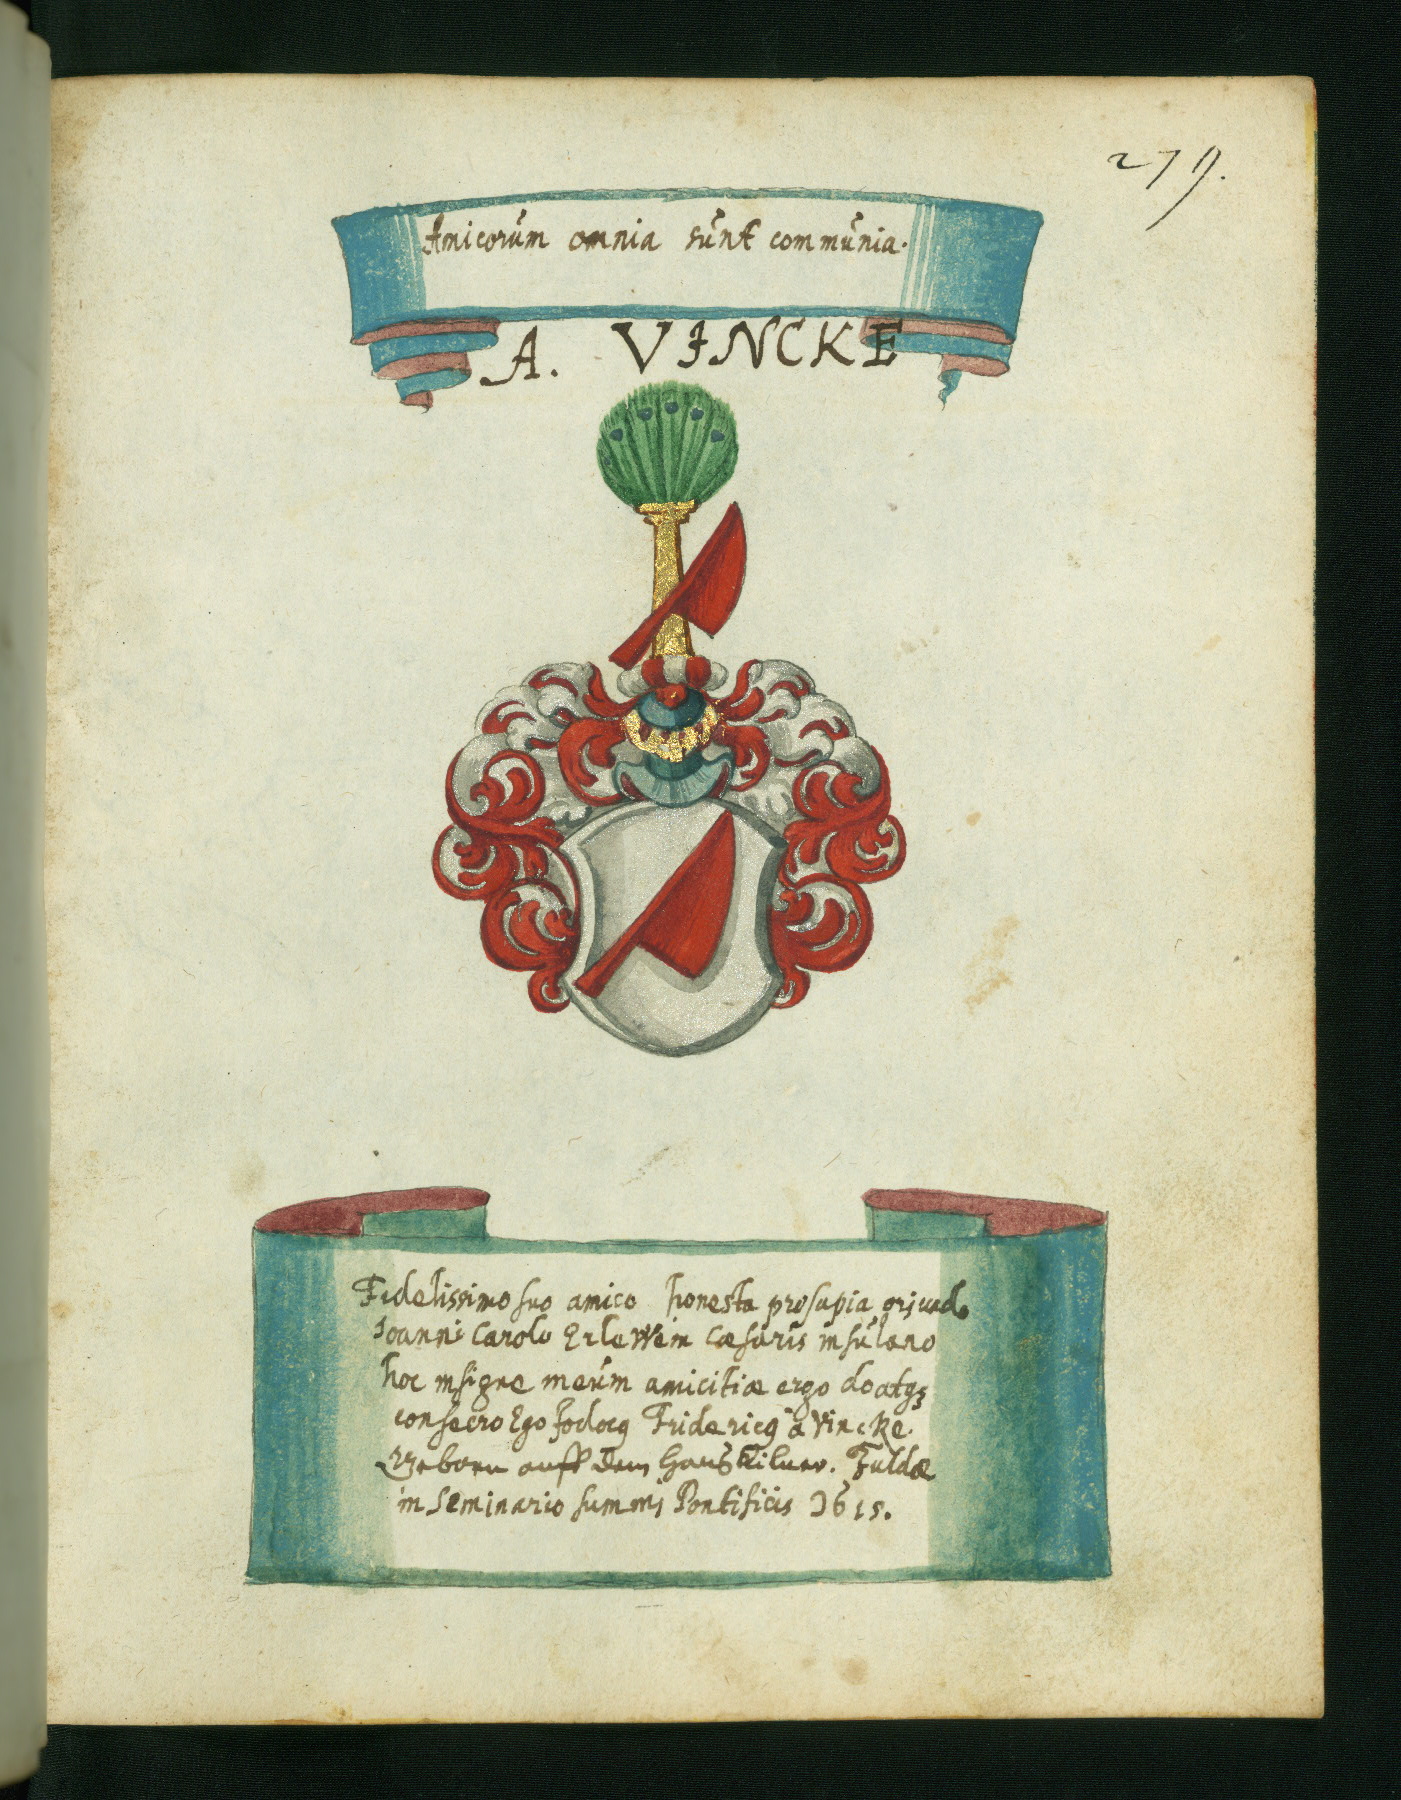 279.
Amicorum omnia sunt communia.
A. VINCKE
Fidelissimo suo amico honesta prosapia
Joanni Carolo Erlewein Cæsaris insulano
hoc insigne meum amicitiæ ergo doatqȝ
consecro Ego Jodocq Fridericq a Vincke.
Geborn auff dem Hauß Kilver. Fuldæ
in Seminario summi Pontificis 1615.